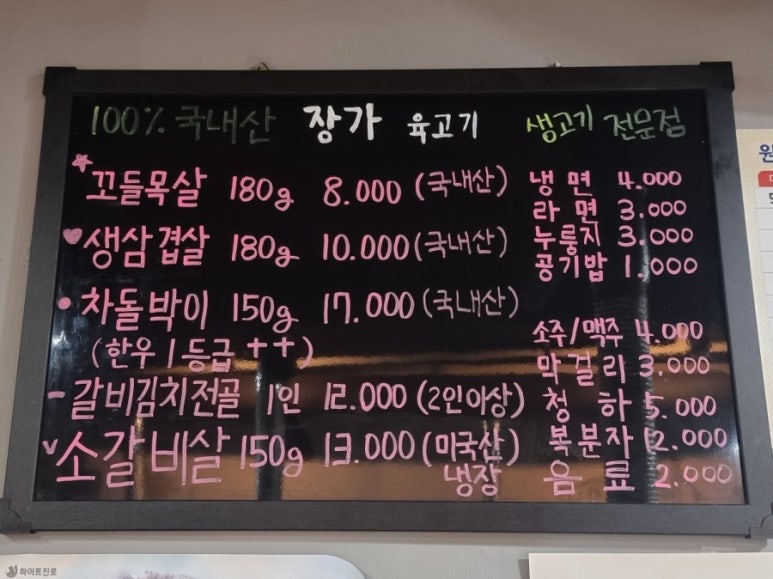 100% 국내산 장가 육고기 생고기 전문점
꼬들목살 180g 8.000 (국내산)
생삼겹살 180g 10.000 (국내산)
차돌박이 150g 17.000 (국내산)
(한우 1등급 ++)
갈비김치전골 1인 12.000 (2인이상)
소갈비살 150g 13.000 (미국산)
냉장
냉면 4.000
라면 3.000
누룽지 3.000
공기밥 1.000
소주/맥주 4.000
막걸리 3.000
청하 5.000
복분자 12.000
음료 2.000
하이트진로